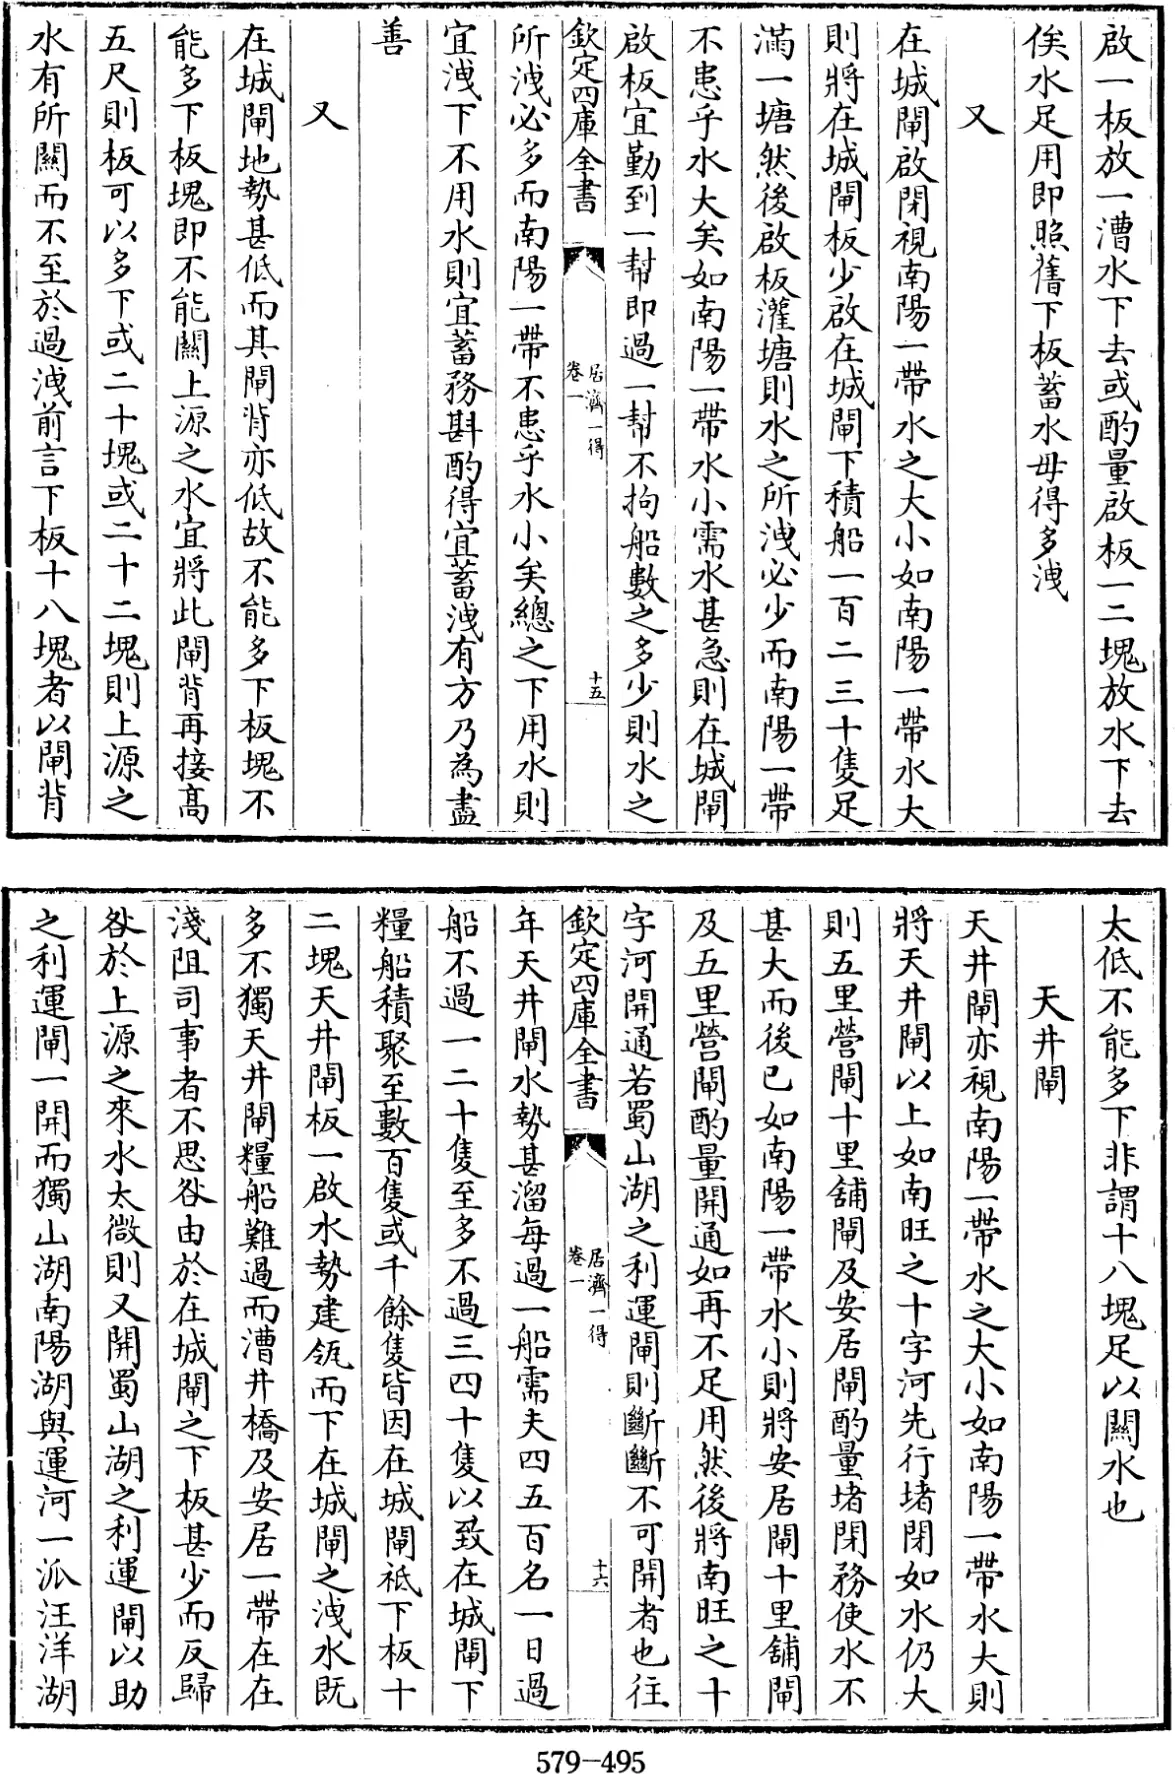 啟一板放一漕水下去或酌量啟板一二塊放水下去
俟水足用即照舊下板蓄水毋得多洩
又
在城閘啟閉視南陽一帶水之大小如南陽一帶水大
則將在城閘板少啟在城閘下積船一百二三十隻足
滿一塘然後啟板灌塘則水之所洩必少而南陽一帶
不患乎水大矣如南陽一帶水小需水甚急則在城閘
啟板宜勤到一幇即過一幇不拘船數之多少則水之
欽定四庫全書
居濟一得
卷一
十五
所洩必多而南陽一帶不患乎水小矣總之下用水則
宜洩下不用水則宜蓄務斟酌得宜蓄洩有方乃為盡
善
又
在城閘地勢甚低而其閘背亦低故不能多下板塊不
能多下板塊即不能關上源之水宜將此閘背再接高
五尺則板可以多下或二十塊或二十二塊則上源之
水有所關而不至於過洩前言下板十八塊者以閘背
太低不能多下非謂十八塊足以關水也
天井閘
天井閘亦視南陽一帶水之大小如南陽一帶水大則
將天井閘以上如南旺之十字河先行堵閉如水仍大
則五里營閘十里舖閘及安居閘酌量堵閉務使水不
甚大而後已如南陽一帶水小則將安居閘十里舖閘
及五里營閘酌量開通如再不足用然後將南旺之十
字河開通若蜀山湖之利運閘則斷斷不可開者也往
欽定四庫全書
居濟一得
卷一
十六
年天井閘水勢甚溜每過一船需夫四五百名一日過
船不過一二十隻至多不過三四十隻以致在城閘下
糧船積聚至數百隻或千餘隻皆因在城閘祗下板十
二塊天井閘板一啟水勢建瓴而下在城閘之洩水既
多不獨天井閘糧船難過而漕井橋及安居一帶在在
淺阻司事者不思咎由於在城閘之下板甚少而反歸
咎於上源之來水太微則又開蜀山湖之利運閘以助
之利運閘一開而獨山湖南陽湖與運河一派汪洋湖
579-495